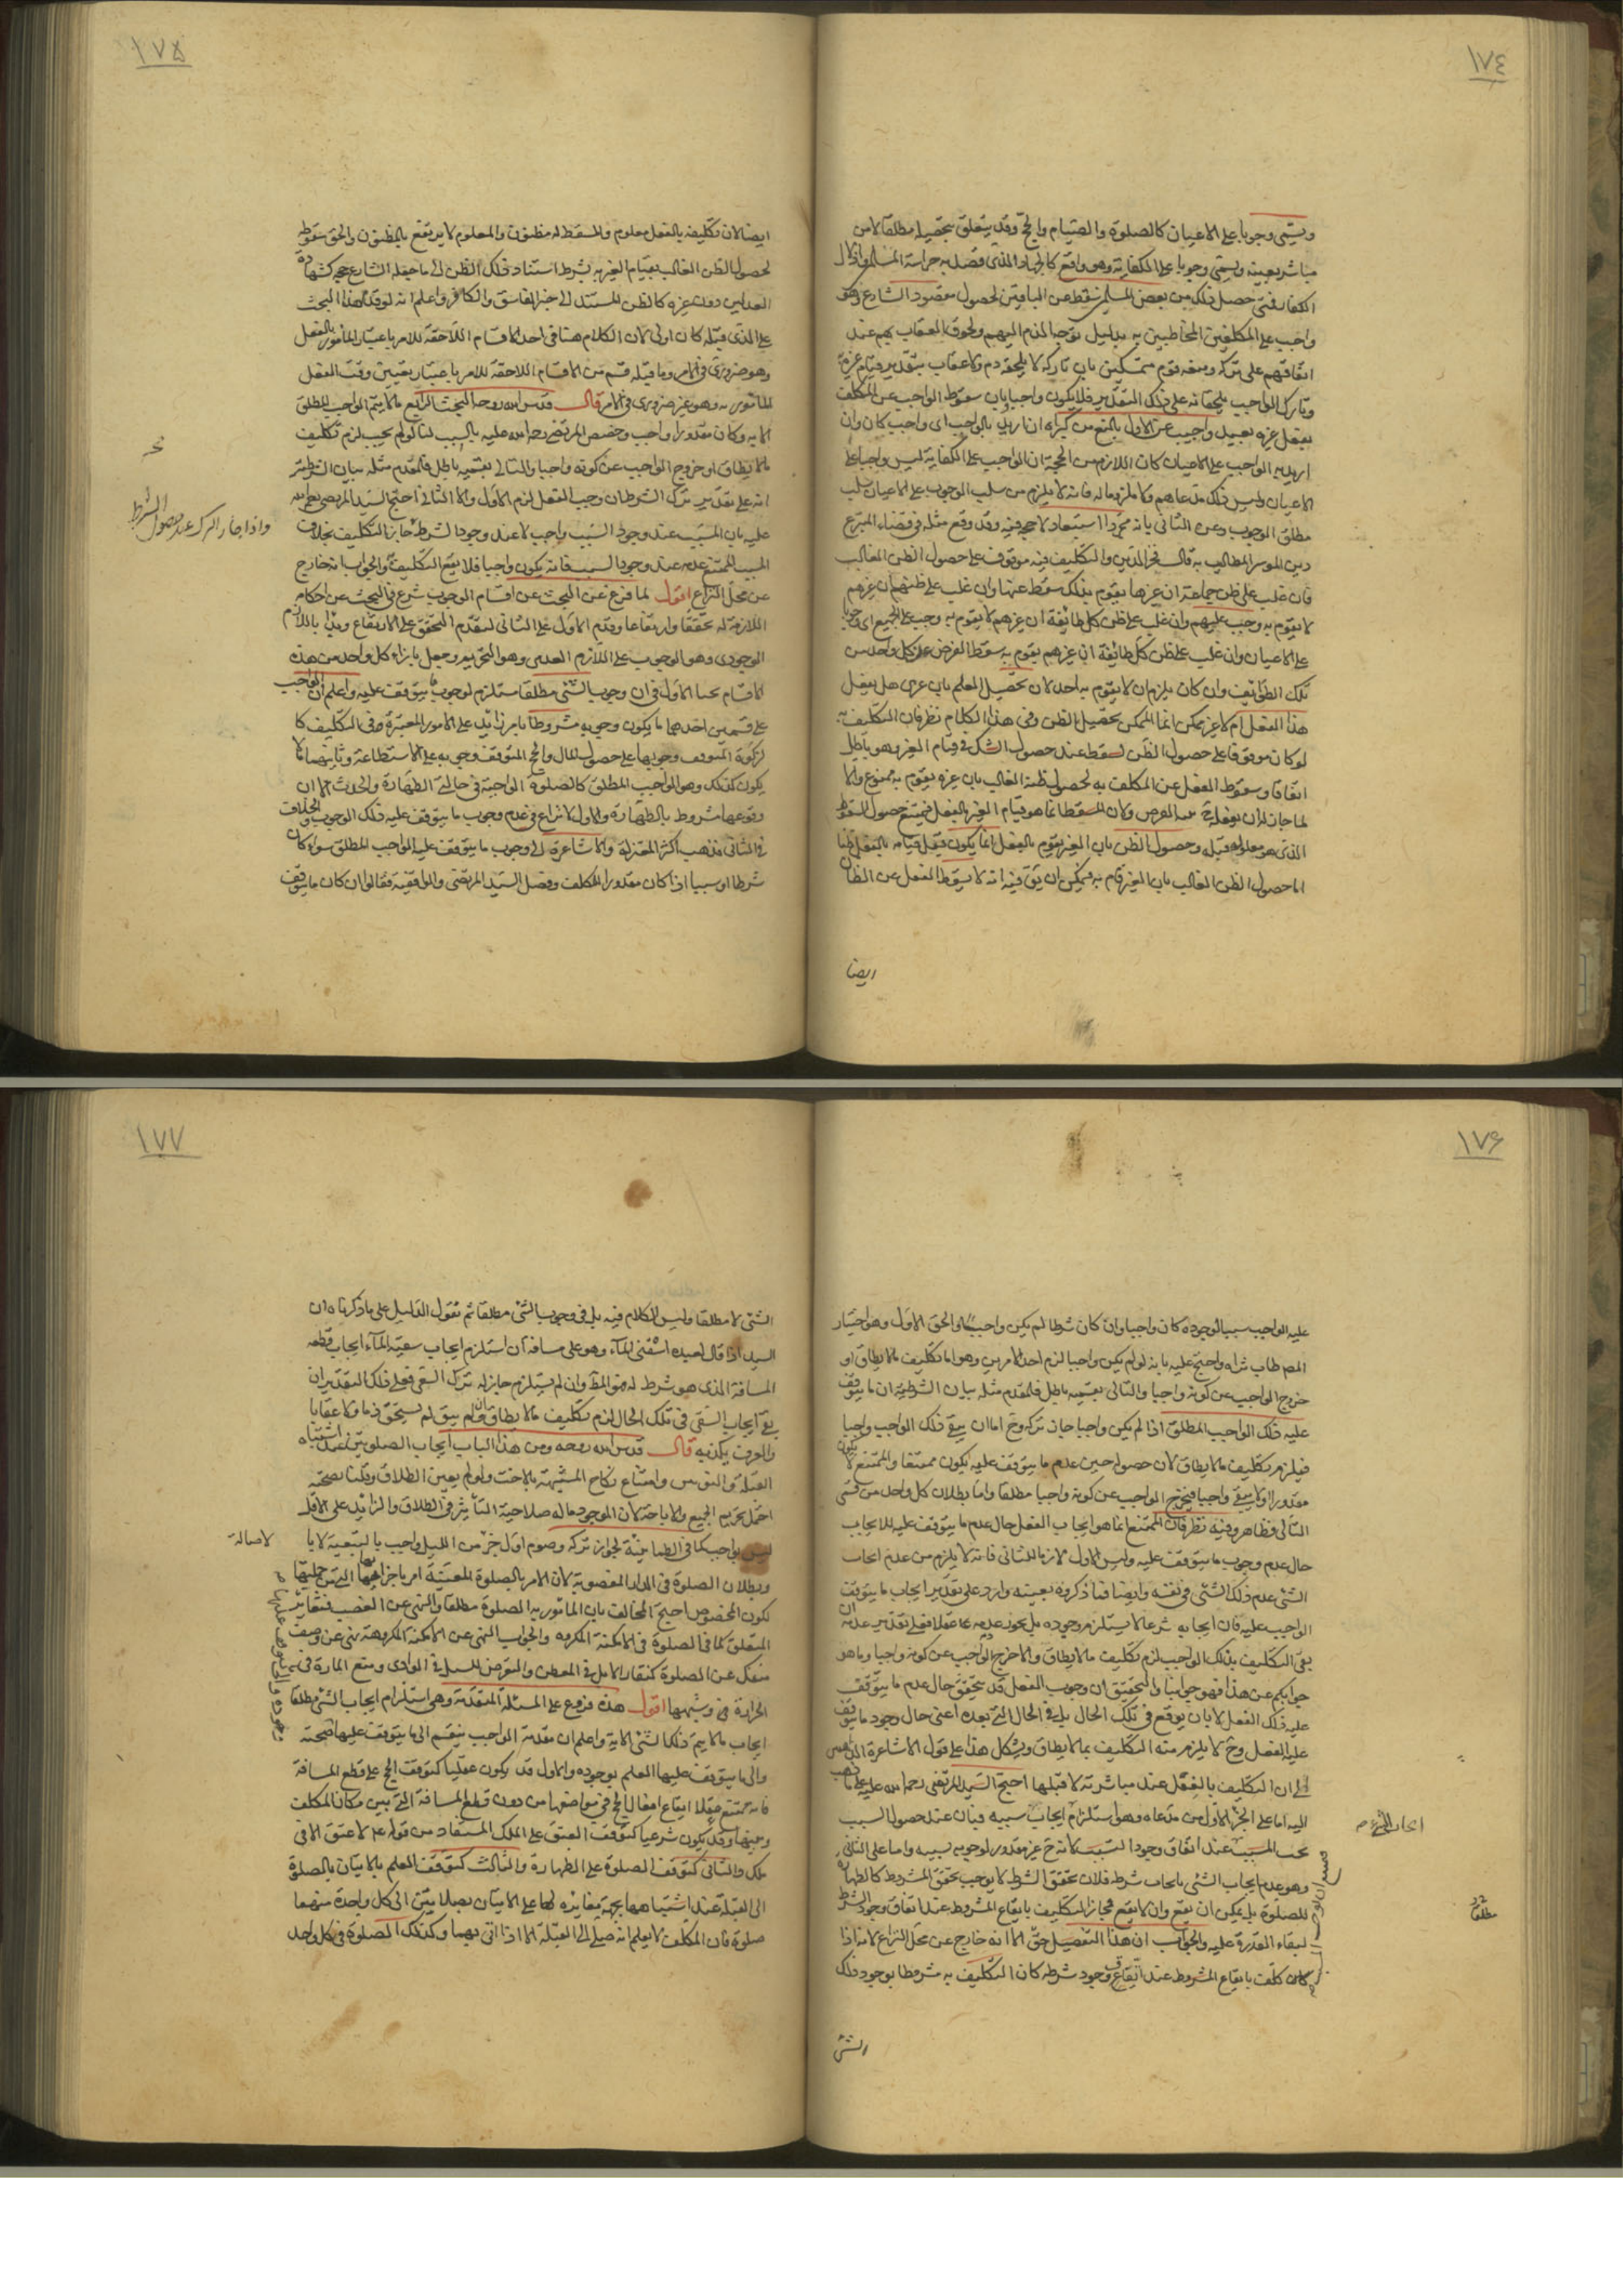 ١٧٤
ويسمى وجوبا على الاعيان كالصلوة والصيام والحج وقد يتعلق بتحصيله مطلقا لا من
مباشر بعينه ويسمى وجوبا على الكفاية وهو واقع كالجهاد الذى قصد به حراسة المسلمين واذلال
الكفار فمتى حصل ذلك من بعض المسلمين سقط عن الباقين لحصول مقصود الشارع وهو
واجب على المكلفين المخاطبين به بدليل توجه الذم اليهم ولحوق العقاب بهم عند
اتفاقهم على تركه ومنعه قوم متمسكين بان تاركه لا يلحقه ذم ولا عقاب بتقدير قيام غيره به
وتارك الواجب يلحقانه على ذلك التقدير فلا يكون واجبا وبان سقوط الواجب عن المكلف
بفعل غيره بعيد واجيب عن الاول بالمنع من كبراه ان اريد بالواجب اى واجب كان وان
اريد به الواجب على الاعيان كان اللازم من الحجة ان الواجب على الكفاية ليس واجبا على
الاعيان وليس ذلك مدعاهم ولا ملزوما له فانه لا يلزم من سلب الوجوب على الاعيان سلب
مطلق الوجوب وعن الثانى بانه مجرد استبعاد لا حجة فيه وقد وقع مثله فى قضاء المتبرع
دين الموسر المطالب به قال فخر الدين والتكليف فيه موقوف على حصول الظن الغالب
فان غلب على ظن جماعة ان غيرها يقوم بذلك سقط عنها وان غلب على ظنهم ان غيرهم
لا يقوم به وجب عليهم وان غلب على ظن كل طائفة ان غيرهم لا يقوم به وجب على الجميع اى وجوبا
على الاعيان وان غلب على ظن كل طائفة ان غيرهم يقوم به سقط الفرض عن كل واحد من
تلك الطوائف وان كان يلزم ان لا يقوم به احد لان تحصيل العلم بان غيرى هل يفعل
هذا الفعل ام لا غير ممكن انما الممكن تحصيل الظن وفى هذا الكلام نظر فان التكليف به
لو كان موقوفا على حصول الظن لسقط عند حصول الشك فى قيام الغير وهو باطل
اتفاقا وسقوط الفعل عن المكلف به لحصول ظنه الغالب بان غيره يقوم به ممنوع والا
لما جاز له ان يفعله بنية الفرض ولان المسقط انما هو قيام الغير بالفعل فيمتنع حصول السقوط
الذى هو معلوله قبله وحصول الظن بان الغير يقوم بالفعل انما يكون قبل قيامه بالفعل ظنا
اما حصول الظن الغالب بان الغير قام به فيمكن ان يق فيه انه لا يسقط الفعل عن الظان
ايضا
١٧٥
ايضا لان تكليفه بالفعل معلوم والمسقط له مظنون والمعلوم لا يرتفع بالمظنون والحق سقوطه
لحصول الظن الغالب بقيام الغير به بشرط استناد ذلك الظن الى ما جعله الشارع حجة كشهادة
العدلين دون غيره كالظن المستند الى خبر الفاسق والكافر واعلم انه لو قدم هذا البحث
على الذى قبله كان اولى لان الكلام هنا فى احد الاقسام اللاحقة للامر باعتبار المأمور بالفعل
وهو ضرورى فى الامر وما قبله قسم من الاقسام اللاحقة للامر باعتبار تعيين وقت الفعل
المأمور به وهو غير ضرورى فى الامر قال قدس الله روحه البحث الرابع ما لا يتم الواجب المطلق
الا به وكان مقدورا واجب وخصص المرتضى رحمه الله عليه بالسبب لنا لو لم يجب لزم تكليف
ما لا يطاق او خروج الواجب عن كونه واجبا والتالى بقسميه باطل فالمقدم مثله بيان الشرطية
انه على تقدير ترك الشرط ان وجب الفعل لزم الاول والا الثانى احتج السيد المرتضى رحمه الله
عليه بان المسبب عند وجود السبب واجب لا عند وجود الشرط جاز التكليف بخلاف
المسبب الممتنع عدمه عند وجود السبب فانه يكون واجبا فلا يقع التكليف به والجواب انه خارج
عن محل النزاع اقول لما فرغ عن البحث عن اقسام الوجوب شرع فى البحث عن احكام
اللازمة له تحققا وارتفاعا وقدم الاول على الثانى لتقدم التحقق على الارتفاع وبدأ باللازم
الوجودى وهو الوجوب على اللازم العدمى وهو التحريم وجعل بازاء كل واحد من هذه
الاقسام بحثا الاول فى ان وجوب الشئ مطلقا مستلزم لوجوب ما يتوقف عليه واعلم ان الواجب
على قسمين احدهما ما يكون وجوبه مشروطا بامر زائد على الامور المعتبرة فى التكليف كا
لزكوة المتوقف وجوبها على حصول المال والحج المتوقف وجوبه على الاستطاعة وثانيهما لا
يكون كذلك وهو الواجب المطلق كالصلوة الواجبة فى حالتى الطهارة والحدث الا ان
وقوعها مشروط بالطهارة والاول لا نزاع فى عدم وجوب ما يتوقف عليه ذلك الوجوب والخلاف
فى الثانى فذهب اكثر المعتزلة والاشاعرة الى وجوب ما يتوقف عليه الواجب المطلق سواء كان
شرطا او سببا اذا كان مقدورا للمكلف وفصل السيد المرتضى والواقفية فقالوا ان كان ما يتوقف
واذا جاز الترك عند حصول الشرط
١٧۶
عليه الواجب سببا لوجوده كان واجبا وان كان شرطا لم يكن واجبا والحق الاول وهو اختيار
المصـ طاب ثراه واحتج عليه بانه لو لم يكن واجبا لزم احد الامرين وهو اما تكليف ما لا يطاق او
خروج الواجب عن كونه واجبا والتالى بقسميه باطل فالمقدم مثله بيان الشرطية ان ما يتوقف
عليه ذلك الواجب المطلق اذا لم يكن واجبا جاز تركه وح اما ان يبقى ذلك الواجب واجبا
فيلزم تكليف ما لا يطاق لان حصوله حين عدم ما يتوقف عليه يكون ممتنعا والممتنع لا يكون
مقدورا او لا يبقى واجبا فيخرج الواجب عن كونه واجبا مطلقا واما بطلان كل واحد من قسمى
التالى فظاهر وفيه نظر فان الممتنع انما هو ايجاب الفعل حال عدم ما يتوقف عليه لا الايجاب
حال عدم وجوب ما يتوقف عليه وليس الاول لازما للثانى فانه لا يلزم من عدم ايجاب
الشئ عدم ذلك الشئ فى نفسه وايضا فما ذكروه بعينه وارد على تقدير ايجاب ما يتوقف
الواجب عليه فان ايجابه شرعا لا يستلزم وجوده بل يجوز عدمه عقلا فعلى تقدير عدمه ان
بقى التكليف بذلك الواجب لزم تكليف ما لا يطاق والا خرج الواجب عن كونه واجبا وما هو
جوابكم عن هذا فهو جوابنا والتحقيق ان وجوب الفعل قد يتحقق حال عدم ما يتوقف
عليه ذلك الفعل لا بان يوقع فى تلك الحال بل فى الحال التى بعده اعنى حال وجود ما يتوقف
عليه الفعل وح لا يلزم منه التكليف بما لا يطاق ويشكل هذا على قول الاشاعرة الذاهبين
الى ان التكليف بالفعل عند مباشرته لا قبلها احتج السيد المرتضى رحمه الله عليه على ما ذهب
اليه اما على الجزء الاول من مدعاه وهو استلزام ايجاب سببه فبان عند حصول السبب
يجب المسبب عند اتفاق وجود السبب لانه ح غير مقدور لوجوبه بسببه واما على الثانى
وهو عدم ايجاب الشئ بايجاب شرطه فلان تحقق الشرط لا يوجب تحقق المشروط كالطهارة
للصلوة بل يمكن ان يقع وان لا يقع فجاز التكليف بايقاع المشروط عند اتفاق وجود الشرط
لبقاء القدرة عليه والجواب ان هذا التفصيل حق الا انه خارج عن محل النزاع لانه اذا
كان كلف بايقاع المشروط عند اتفاق وجود شرطه كان التكليف به مشروطا بوجود ذلك
الشئ
مطلقا
١٧٧
الشئ لا مطلقا وليس الكلام فيه بل فى وجوب الشئ مطلقا ثم نقول الدليل على ما ذكرناه ان
السيد اذا قال لعبده اسقنى الماء وهو على مسافة ان استلزم ايجاب سقيه الماء ايجاب قطعه
المسافة الذى هو شرط له فهو المط وان لم يستلزم جاز له ترك السقى فعلى ذلك التقدير ان
بقى ايجاب السقى فى تلك الحال لزم تكليف ما لا يطاق وان لم يبق لم يستحق ذما ولا عقابا
والعرف يكذبه قال قدس الله روحه ومن هذا الباب ايجاب الصلوتين عند اشتباه
القبلة والثوبين وامتناع نكاح المشتبهة بالاخت ولو لم يعين الطلاق وقلنا بصحته
احتمل تحريم الجميع والاباحة لان الموجود ما له صلاحية التأثير فى الطلاق والزائد على الاقل
ليس بواجب كما فى الطمأنينة لجواز تركه وصوم اول جزء من الليل واجب بالتبعية لا با
لاصالة
وبطلان الصلوة فى الدار المغصوبة لان الامر بالصلوة المعينة امر باجزائها التى من جملتها
الكون المخصوص احتج المخالف بان المأمور به الصلوة مطلقا والنهى عن الغصب فتغاير
المتعلق كما فى الصلوة فى الامكنة المكروهة والجواب النهى عن الامكنة المكروهة نهى عن وصف
منفك عن الصلوة كنفار الابل فى المعطن والتعرض للسيل فى الوادى ومنع المارة فى
الجادة وشبهها اقول هذه فروع على المسئلة المتقدمة وهى استلزام ايجاب الشئ مطلقا
ايجاب ما لا يتم ذلك الشئ الا به واعلم ان مقدمة الواجب ينقسم الى ما يتوقف عليها صحته
والى ما يتوقف عليها العلم بوجوده والاول قد يكون عقليا كتوقف الحج على قطع المسافة
فانه يمتنع عقلا ايقاع افعال الحج فى مواضعها من دون قطع المسافة التى بين مكان المكلف
وبينها وقد يكون شرعيا كتوقف العتق على الملك المستفاد من قوله ع لا عتق الا فى
ملك والثانى كتوقف الصلوة على الطهارة والثالث كتوقف العلم بالاتيان بالصلوة
الى القبلة عند اشتباهها بجهة مغايرة لها على الاتيان بصلاتين الى كل واحدة منهما
صلوة فان المكلف لا يعلم انه صلى الى القبلة الا اذا اتى بهما وكذلك الصلوة فى كل واحد